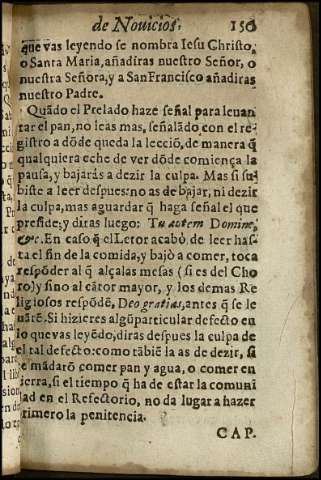 de Nouicios. 150
que vas leyendo se nombra Iesu Christo,
o Santa Maria, añadiras nuestro Señor, o
nuestra Señora, y a San Francisco añadiras
nuestro Padre.
Quãdo el Prelado haze señal para leuan
tar el pan, no leas mas, señalãdo con el re-
gistro a dõde queda la lecciõ, de manera q̃
qualquiera eche de ver dõde comiença la
pausa, y bajarás a dezir la culpa. Mas si su-
biste a leer despues: no as de bajar, ni dezir
la culpa, mas aguardar q̃ haga señal el que
preside; y diras luego: Tu autem Domine,
&c. En caso q̃ el Letor acabò de leer has-
ta el fin de la comida, y bajò a comer, toca
respõder al q̃ alça las mesas (si es del Cho
ro) y sino al cãtor mayor, y los demas Re
ligiosos respõdẽ, Deo gratias, antes q̃ se le
uãtẽ. Si hizieres algũ particular defecto en
lo que vas leyẽdo, diras despues la culpa de
el tal defecto: como tãbiẽ la as de dezir, si
te mãdarõ comer pan y agua, o comer en
ierra, si el tiempo q̃ ha de estar la comuni
ad en el Refectorio, no da lugar a hazer
rimero la penitencia.
CAP.